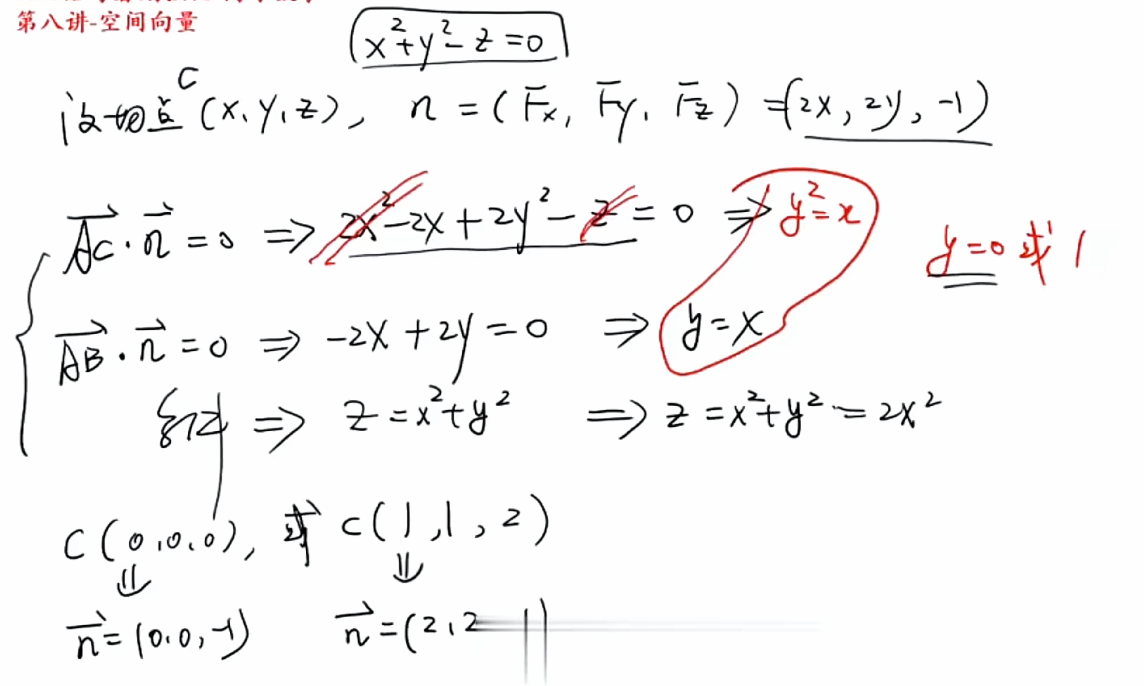 第八讲-空间向量
x²+y²-z=0
设切点C(x,y,z), n=(Fx, Fy, Fz)=(2x, 2y, -1)
AC·n=0 ⇒ 2x²-2x+2y²-z=0 ⇒ y²=x
y=0或1
AB·n=0 ⇒ -2x+2y=0 ⇒ y=x
⇒ z=x²+y² ⇒ z=x²+y²=2x²
C(0,0,0), 或 C(1,1,2)
⇓ ⇓
n=(0,0,-1) n=(2,2